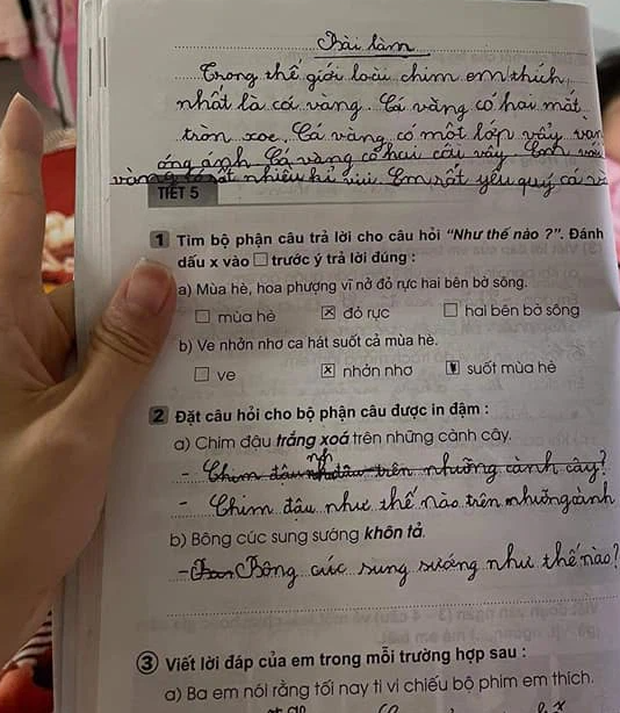 Bài làm
Trong thế giới loài chim em thích
nhất là cá vàng. Cá vàng có hai mắt
tròn xoe. Cá vàng có một lớp vẩy
óng ánh. Cá vàng có hai cái vây. Em
nhiều khi vui. Em rất yêu quý cá
TIẾT 5
1 Tìm bộ phận câu trả lời cho câu hỏi “Như thế nào ?”. Đánh
dấu x vào □ trước ý trả lời đúng :
a) Mùa hè, hoa phượng vĩ nở đỏ rực hai bên bờ sông.
□ mùa hè ☒ đỏ rực □ hai bên bờ sông
b) Ve nhởn nhơ ca hát suốt cả mùa hè.
□ ve ☒ nhởn nhơ suốt mùa hè
2 Đặt câu hỏi cho bộ phận câu được in đậm :
a) Chim đậu trắng xoá trên những cành cây.
nh
- Chim đậu trên những cành cây?
- Chim đậu như thế nào trên những cành
b) Bông cúc sung sướng khôn tả.
- Bông cúc sung sướng như thế nào?
3 Viết lời đáp của em trong mỗi trường hợp sau :
a) Ba em nói rằng tối nay ti vi chiếu bộ phim em thích.